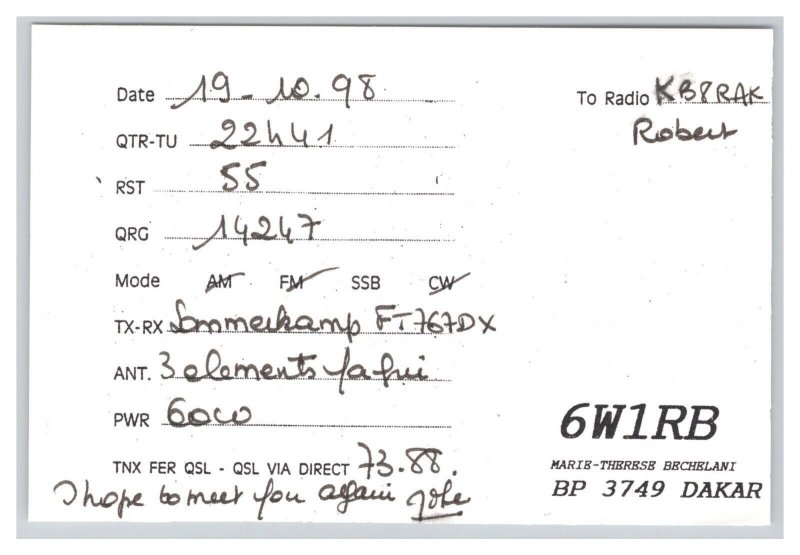 Date 19-10.98
To Radio KB8RAK
Robert
QTR-TU 22h41
RST 55
QRG 14247
Mode AM FM SSB CW
TX-RX Sommerkamp FT767DX
ANT. 3 elements
PWR 60W
6W1RB
MARIE-THERESE BECHELANI
BP 3749 DAKAR
TNX FER QSL - QSL VIA DIRECT 73.88.
I hope to meet you again